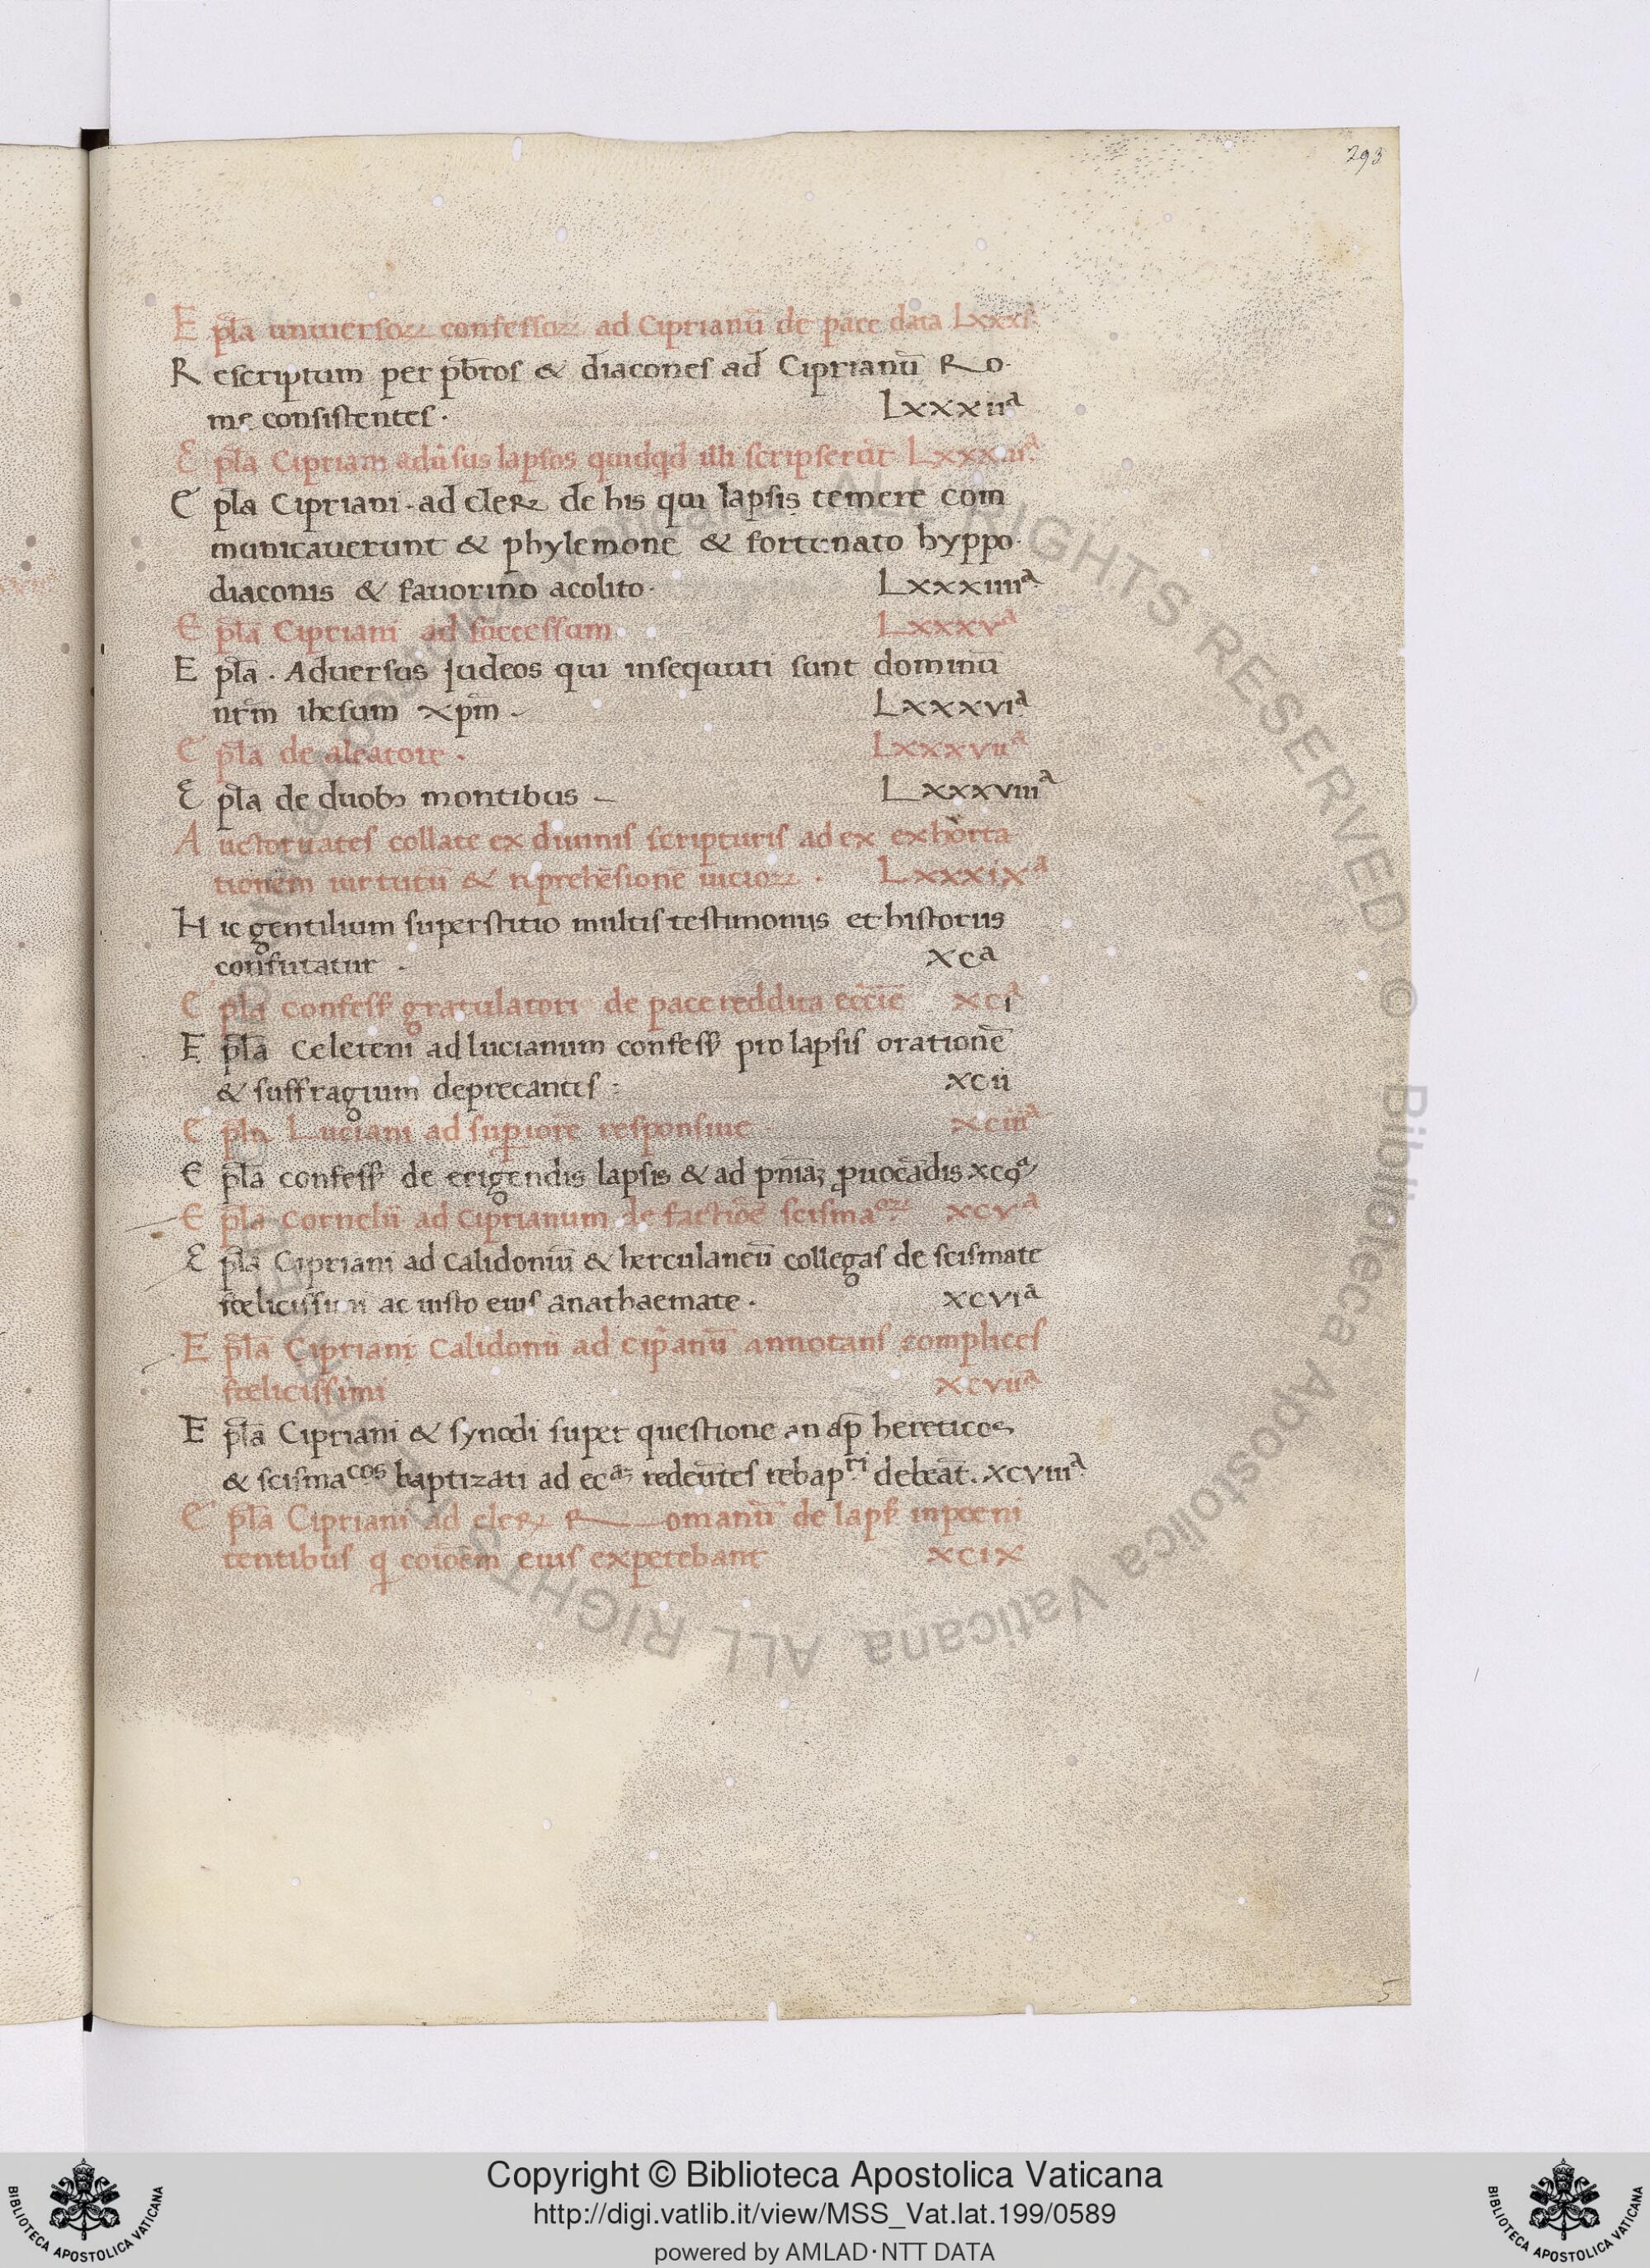 293
Epl̄a uniuersoꝝ confessoꝝ ad Ciprianū de pace data Lxxxiª
Rescriptum per pb̄ros & diacones ad Ciprianū Ro
me consistentes. Lxxxiiª
Epl̄a Cipriani adūsus lapsos quidqd illi scripserūt Lxxxiiiª
Epl̄a Cipriani. ad cleꝝ de his qui lapsis temere com
municauerunt & phylemone & fortunato hyppo
diaconis & fauorino acolito. Lxxxiiiiª
Epl̄a Cipriani ad successum. Lxxxvª
Epl̄a. Aduersus judeos qui insequuti sunt dominū
nr̄m ihesum xp̄m. Lxxxviª
Epl̄a de aleatore. Lxxxviiª
Epl̄a de duobꝫ montibus Lxxxviiiª
Auctoritates collate ex diuinis scripturis ad ex exhorta
tionem uirtutū & reprehēsionē uicioꝝ. Lxxxixª
Hic gentilium superstitio multis testimoniis et historiis
confutatur. xcª
Epl̄a confess̄ gratulatori de pace reddita ecc̄ie xciª
Epl̄a Celereni ad lucianum confess̄ pro lapsis orationē
& suffragium deprecantis xcii
Epl̄a Luciani ad supiorē responsiue xciiiª
Epl̄a confess̄ de erigendis lapsis & ad pn̄iaꝫ ꝓuocādis xc9ª
Epl̄a Cornelii ad Ciprianum de factiōe scismaᵒꝝ xcvª
Epl̄a Cipriani ad Calidoniū & herculaneū collegas de scismate
fœlicissimi ac iusto eius anathaemate. xcviª
Epl̄a Cipriani Calidonii ad cip̄anū annotans complices
fœlicissimi xcviiª
Epl̄a Cipriani & synodi super questione an ap̄ hereticos
& scismaᶜᵒˢ baptizati ad ecᵃꝫ redeūtes rebapᵗⁱ debeāt. xcviiiª
Epl̄a Cipriani ad cleꝝ Romanū de laps̄ inpoeni
tentibus q coiōem eius expetebant xcix
5
Copyright © Biblioteca Apostolica Vaticana
http://digi.vatlib.it/view/MSS_Vat.lat.199/0589
powered by AMLAD·NTT DATA
BIBLIOTECA APOSTOLICA VATICANA
BIBLIOTECA APOSTOLICA VATICANA